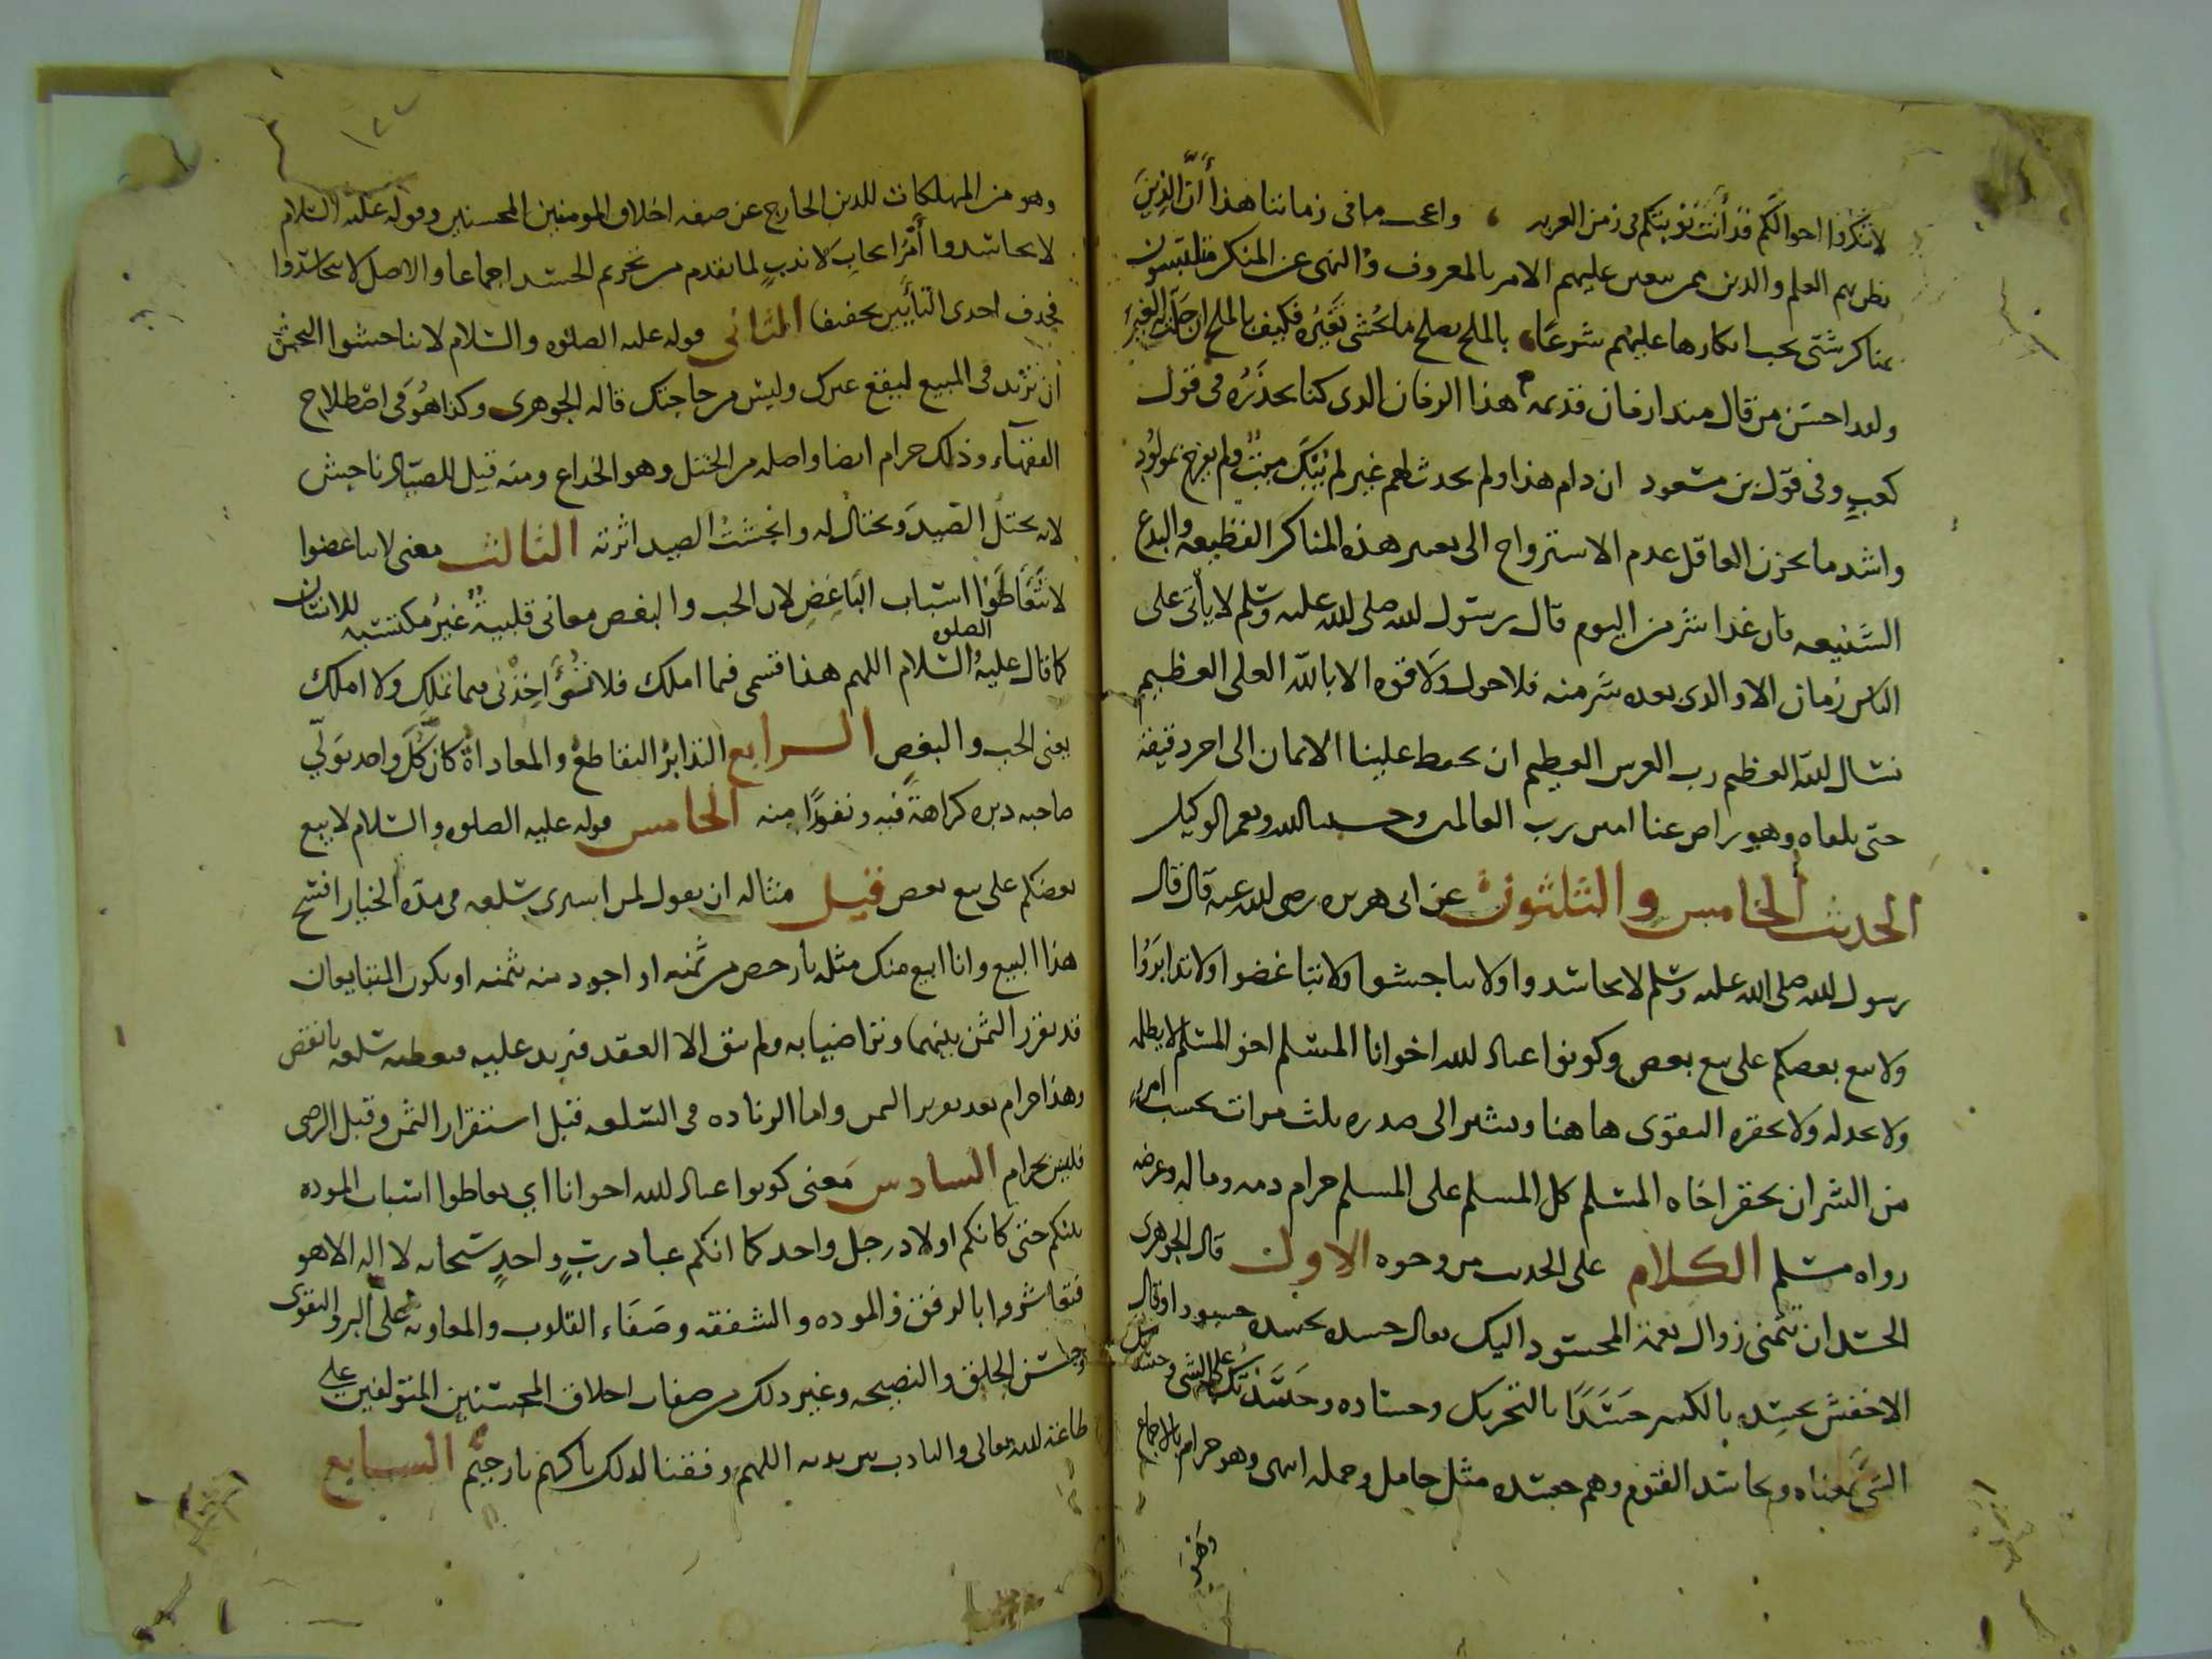 لا تنكروا احوالكم قد أنت نوبتكم في زمن العربه ، واعجب ما في زماننا هذا أنّ الذين
نظن بهم العلم والدين ممن يتعين عليهم الامر بالمعروف والنهي عن المنكر متلبسون
بمناكر شتى يجب انكارها عليهم شرعا، بالملح يصلح ما يخشى تغيره فكيف بالملح ان حلت به الغير
ولقد احسن من قال منذ ازمان قديمه هذا الزمان الذي كنا نحذره في قول
كعب وفي قول بن مسعود ان دام هذا ولم يحدث لهم غير لم يبك ميت ولم يفرح بمولود
واشد ما يحزن العاقل عدم الاسترواح الى تغيير هذه المناكر الفظيعه والبدع
الشنيعه فان غدا شر من اليوم قال رسول الله صلى الله عليه وسلم لا يأتي على
الناس زمان الا والذي بعده شر منه فلا حول ولا قوه الا بالله العلي العظيم
نسال الله العظيم رب العرش العظيم ان يحفظ علينا الايمان الى اخر دقيقة
حتى نلقاه وهو راض عنا امين رب العالمين وحسبنا الله ونعم الوكيل
الحديث الخامس والثلثون عن ابي هريره رضي الله عنه قال قال
رسول الله صلى الله عليه وسلم لا تحاسدوا ولا تناجشوا ولا تباغضوا ولا تدابروا
ولا يبع بعضكم على بيع بعض وكونوا عباد الله اخوانا المسلم اخو المسلم لا يظلمه
ولا يخذله ولا يحقره التقوى هاهنا ويشير الى صدره ثلث مرات بحسب امرء
من الشر ان يحقر اخاه المسلم كل المسلم على المسلم حرام دمه وماله وعرضه
رواه مسلم الكلام على الحديث من وجوه الاول قال الجوهري
الحسد ان تتمنى زوال نعمة المحسود اليك يقال حسده يحسده حسودا وقال
الاخفش يحسده بالكسر حسدا بالتحريك وحساده وحسدتك على الشي وحسدتك
الشي بمعناه وتحاسد القوم وهم حسده مثل حامل وحمله انتهى وهو حرام بالاجماع
وهو
١٢٢
وهو من المهلكات للدين الخارج عن صفه اخلاق المومنين المحسنين وقوله عليه السلام
لا تحاسدوا أمر ايجاب لا ندب لما تقدم من تحريم الحسد اجماعا والاصل لا تتحاسدوا
فحذف احدى التأيين تخفيفا الثاني قوله عليه الصلوه والسلام لا تناجشوا النجش
ان تزيد في المبيع ليقع غيرك وليس من حاجتك قاله الجوهري وكذا هو في اصطلاح
الفقهاء وذلك حرام ايضا واصله من الختل وهو الخداع ومنه قيل للصياد ناجش
لانه يختل الصيد ويختال له وانجشت الصيد اثرته الثالث معنى لا تباغضوا
لا تتعاطوا اسباب التباغض لان الحب والبغض معاني قلبية غير مكتسبه للانسان
كما قال عليه الصلوه والسلام اللهم هذا قسمي فيما املك فلا تؤاخذني فيما تملك ولا املك
يعنى الحب والبغض الرابع التدابر التقاطع والمعاداة كان كل واحد يولّي
صاحبه دبره كراهة فيه ونفورا منه الخامس قوله عليه الصلوه والسلام لا يبيع
بعضكم على بيع بعض قيل مثاله ان يقول لمن اشترى سلعه في مدة الخيار افسخ
هذا البيع وانا ابيع منك مثله بارخص من ثمنه او اجود منه بثمنه او يكون المتبايعان
قد تقرر الثمن بينهما وتراضيا به ولم يبق الا العقد فيزيد عليه فيعطيه سلعه بانقص
وهذا حرام بعد تقرير الثمن واما الزياده في السلعه قبل استقرار الثمن وقبل الرضى
فليس بحرام السادس معنى كونوا عباد الله اخوانا اي تعاطوا اسباب الموده
بينكم حتى كانكم اولاد رجل واحد كما انكم عباد رب واحد سبحانه لا اله الا هو
فتعاشروا بالرفق والموده والشفقه وصفاء القلوب والمعاونه على البر والتقوى
وحسن الخلق والنصيحه وغير ذلك من صفات اخلاق المحسنين المتولفين على
طاعة الله تعالى والتادب بين يديه اللهم وفقنا لذلك يا كريم يا رحيم السابع